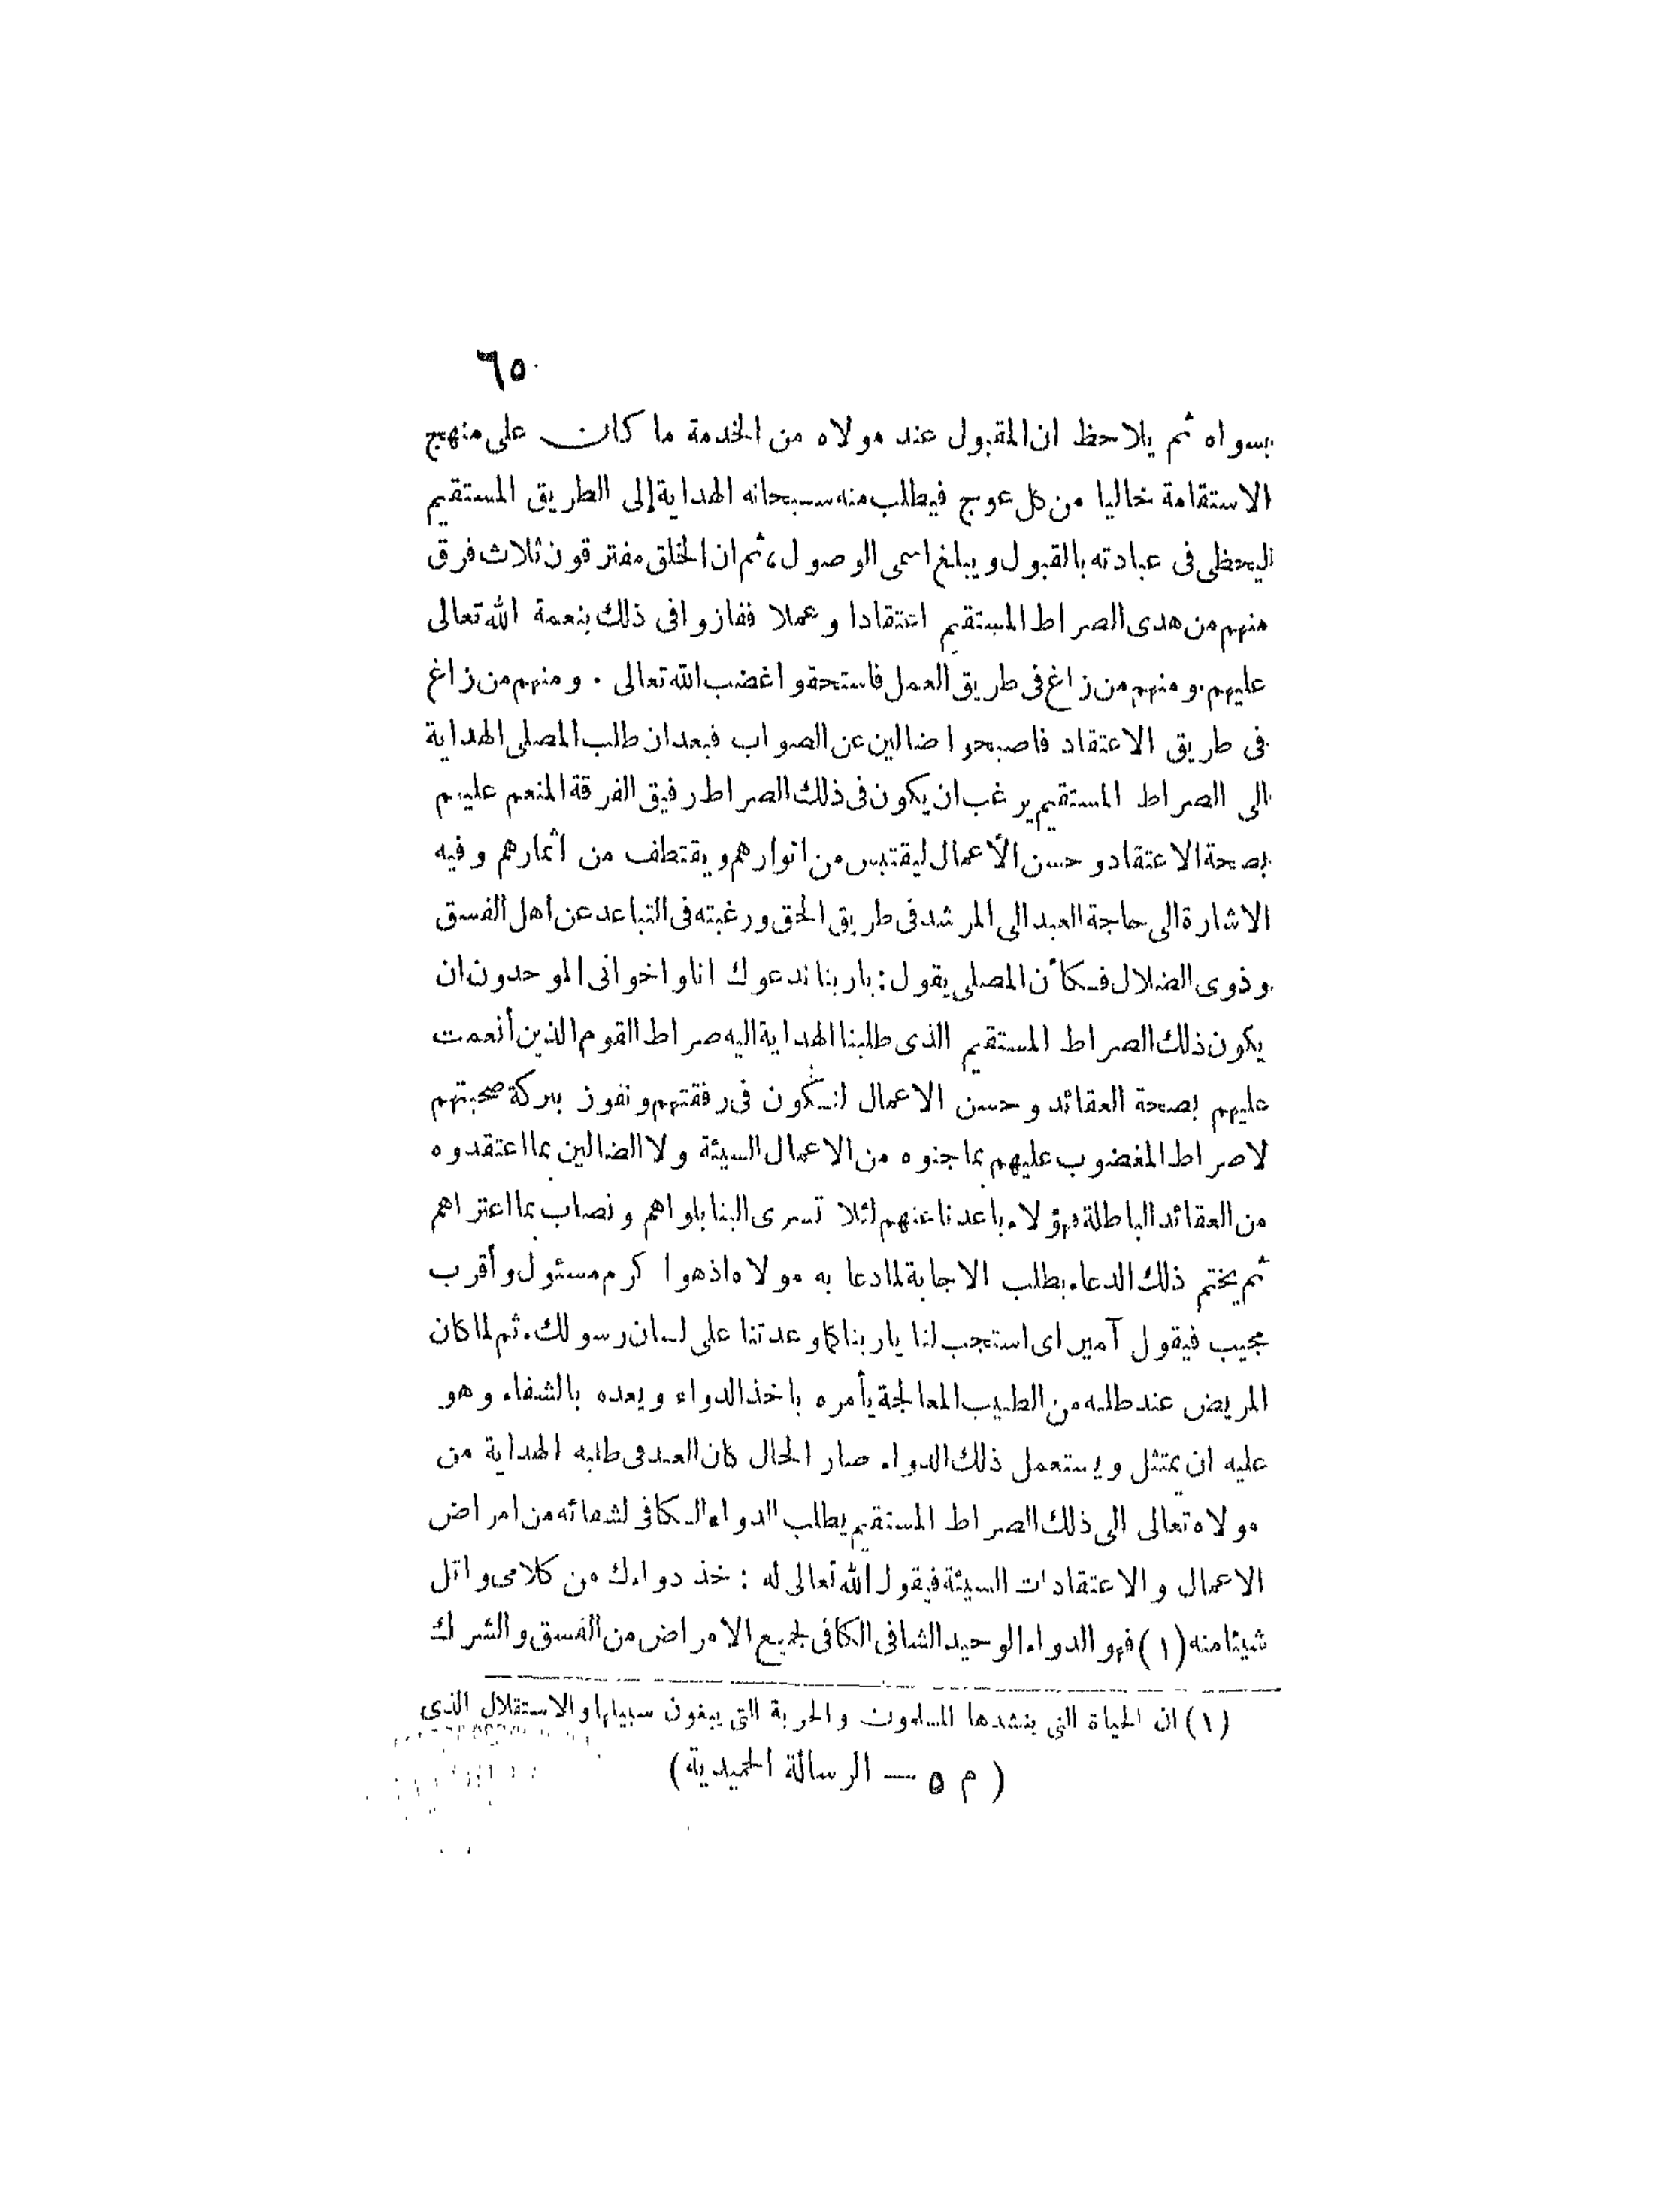 ٦٥
بسواه ثم يلاحظ ان المقبول عند مولاه من الخدمة ما كان على منهج
الاستقامة خاليا من كل عوج فيطلب منه سبحانه الهداية إلى الطريق المستقيم
ليحظى فى عبادته بالقبول ويبلغ اسمى الوصول، ثم ان الخلق مفترقون ثلاث فرق
منهم من هدى الصراط المستقيم اعتقادا وعملا ففازوا فى ذلك بنعمة الله تعالى
عليهم. ومنهم من زاغ فى طريق العمل فاستحقوا غضب الله تعالى . ومنهم من زاغ
فى طريق الاعتقاد فاصبحوا ضالين عن الصواب فبعد ان طلب المصلى الهداية
الى الصراط المستقيم يرغب ان يكون فى ذلك الصراط رفيق الفرقة المنعم عليهم
بصحة الاعتقاد وحسن الأعمال ليقتبس من انوارهم ويقتطف من اثمارهم وفيه
الاشارة الى حاجة العبد الى المرشد فى طريق الحق ورغبته فى التباعد عن اهل الفسق
وذوى الضلال فكأن المصلى يقول : يا ربنا ندعوك انا واخوانى الموحدون ان
يكون ذلك الصراط المستقيم الذى طلبنا الهداية اليه صراط القوم الذين أنعمت
عليهم بصحة العقائد وحسن الاعمال لنكون فى رفقتهم ونفوز ببركة صحبتهم
لا صراط المغضوب عليهم بما جنوه من الاعمال السيئة ولا الضالين بما اعتقدوه
من العقائد الباطلة فهؤلاء باعدنا عنهم لئلا تسرى الينا بلواهم ونصاب بما اعتراهم
ثم يختم ذلك الدعاء بطلب الاجابة لما دعا به مولاه اذ هو اكرم مسئول وأقرب
مجيب فيقول آمين اى استجب لنا يا ربنا كما وعدتنا على لسان رسولك. ثم لما كان
المريض عند طلبه من الطبيب المعالجة يأمره باخذ الدواء ويعده بالشفاء وهو
عليه ان يمتثل ويستعمل ذلك الدواء صار الحال كان العبد فى طلبه الهداية من
مولاه تعالى الى ذلك الصراط المستقيم يطلب الدواء الكافى لشفائه من امراض
الاعمال والاعتقادات السيئة فيقول الله تعالى له : خذ دواءك من كلامى واتل
شيئا منه (١) فهو الدواء الوحيد الشافى الكافى لجميع الامراض من الفسق والشرك
(١) ان الحياة التى ينشدها المسلمون والحرية التى يبغون سبيلها والاستقلال الذى
( م ٥ — الرسالة الحميدية )